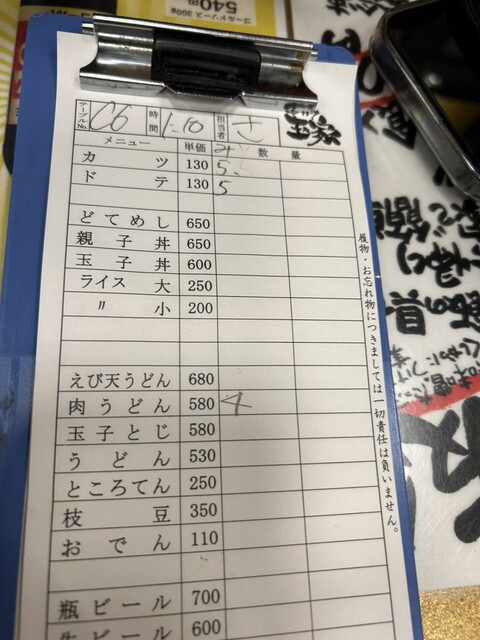 テーブルNo. C6 時間 1:10 担当者 さ
メニュー 単価 数量
カツ 130 5
ドテ 130 5
どてめし 650
親子丼 650
玉子丼 600
ライス大 250
〃小 200
えび天うどん 680
肉うどん 580 4
玉子とじ 580
うどん 530
ところてん 250
枝豆 350
おでん 110
瓶ビール 700
生ビール 600
履物・お忘れ物につきましては一切責任は負いません。
540円
ゴールドソース 300g